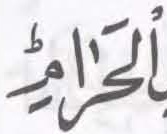 الْحَرَامِؕ